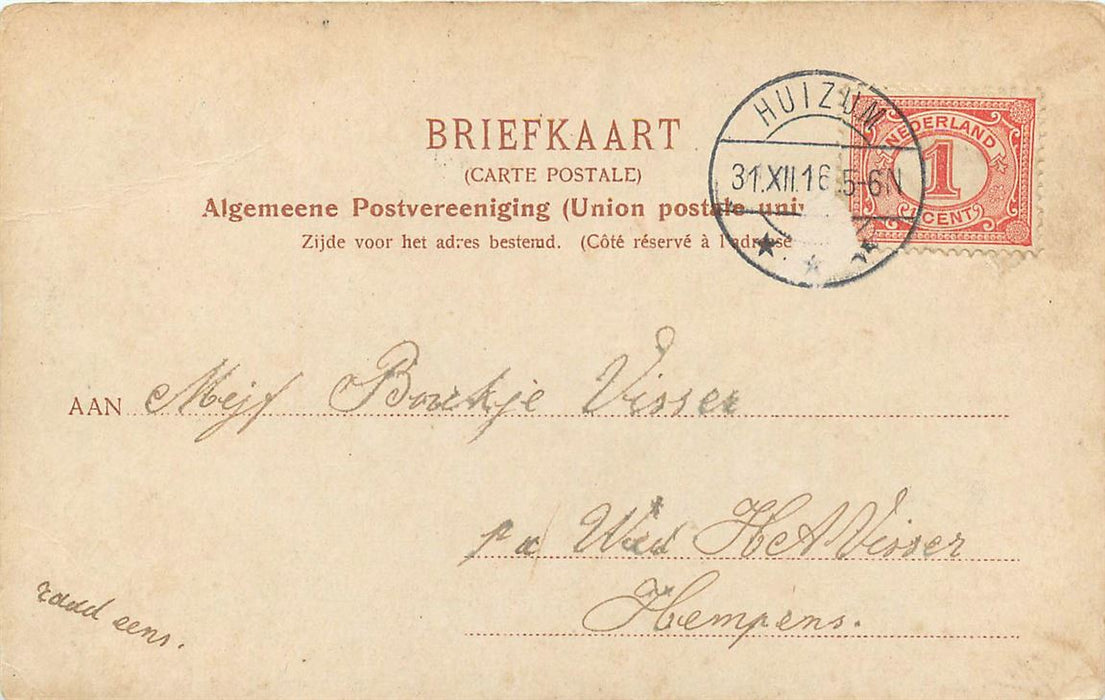 BRIEFKAART
(CARTE POSTALE)
Algemeene Postvereeniging (Union postale univ
Zijde voor het adres bestemd. (Côté réservé à l'adresse
HUIZUM
31.XII.16 5-6N
NEDERLAND
1
CENT
AAN Mejf Boukje Visser
p a Wed H A Visser
Hempens.
raad eens.